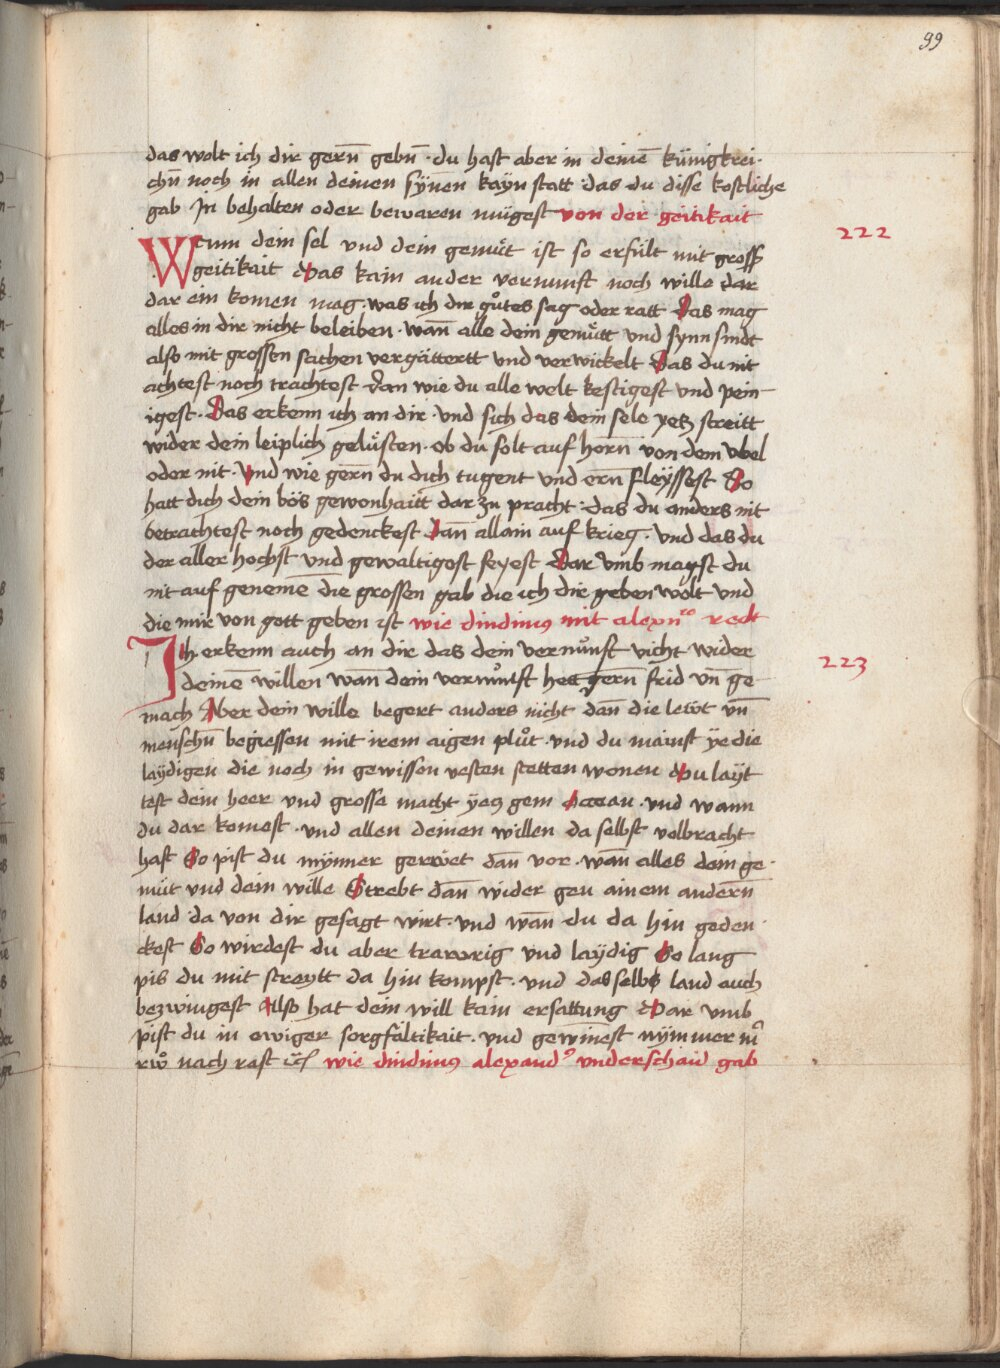 99
das wolt ich dir gern̄ gebn̄ · du hast aber in deinē künigkrei-
chn̄ noch in allen deinen synen kayn statt · das du disse kostliche
gab In behalten oder bewaren mügest von der geitikait
222
Wenn dein sel vnd dein gemüt ist so erfült mit gross
geitikait Das kain ander vernunft noch wille dar
dar ein komen mag · was ich dir gůtes sag oder ratt Das mag
alles in dir nicht beleiben · wan̄ alle dein gemütt vnd synn sindt
also mit grossen sachen vergättertt vnd verwickelt Das du nit
achtest noch trachtest dan wie du alle welt kestigest vnd pein-
igest · Das erkenn ich an dir · vnd sich das dein sele yetz streitt
wider dein leiplich gelüsten · ob du solt auf horn̄ von dem vbel
oder nit · Vnd wie gern̄ du dich tugent vnd ern̄ fleyssest So
hatt dich dein bös gewonhaitt dar zu pracht · das du anders nit
betrachtest noch gedenckest Dan̄ allain auf krieg · vnd das du
der aller hochst vnd gewaltigost seyest Dar vmb magst du
nit auf genemē die grossen gab die ich dir geben wolt vnd
die mir von gott geben ist wie dindimus mit alexn̄ro redt
223
Ich erkenn auch an dir das dein vernůnft vicht wider
deinē willen wan̄ dein vernůnft hett gern̄ frid vn̄ ge-
mach Aber dein wille begert anders nicht dan̄ die lewt vn̄
menschn̄ begiessen mit irem aigen plůt · vnd du mainst ye die
laydigen die noch in gewissen vesten stetten wonen Du layt
test dein heer vnd grosse macht yetz gem Acceau · vnd wann
du dar komest · vnd allen deinen willen da selbst volbracht
hast So pist du mynner gerwet dan̄ vor · wan̄ alles dein ge-
müt vnd dein wille Strebt dan̄ wider gen ainem andern̄
land da von dir gesagt wirt · vnd wan̄ du da hin geden-
ckest So wirdest du aber trawrig vnd laydig So lang
pis du mit streytt da hin kompst · vnd das selbe land auch
bezwingest Also hat dein will kain ersattung Dar vmb
pist du in ewiger sorgfältikait · vnd gewinest nymmer m̄
rwͦ nach rast wie dindimus alexand underschaid gab